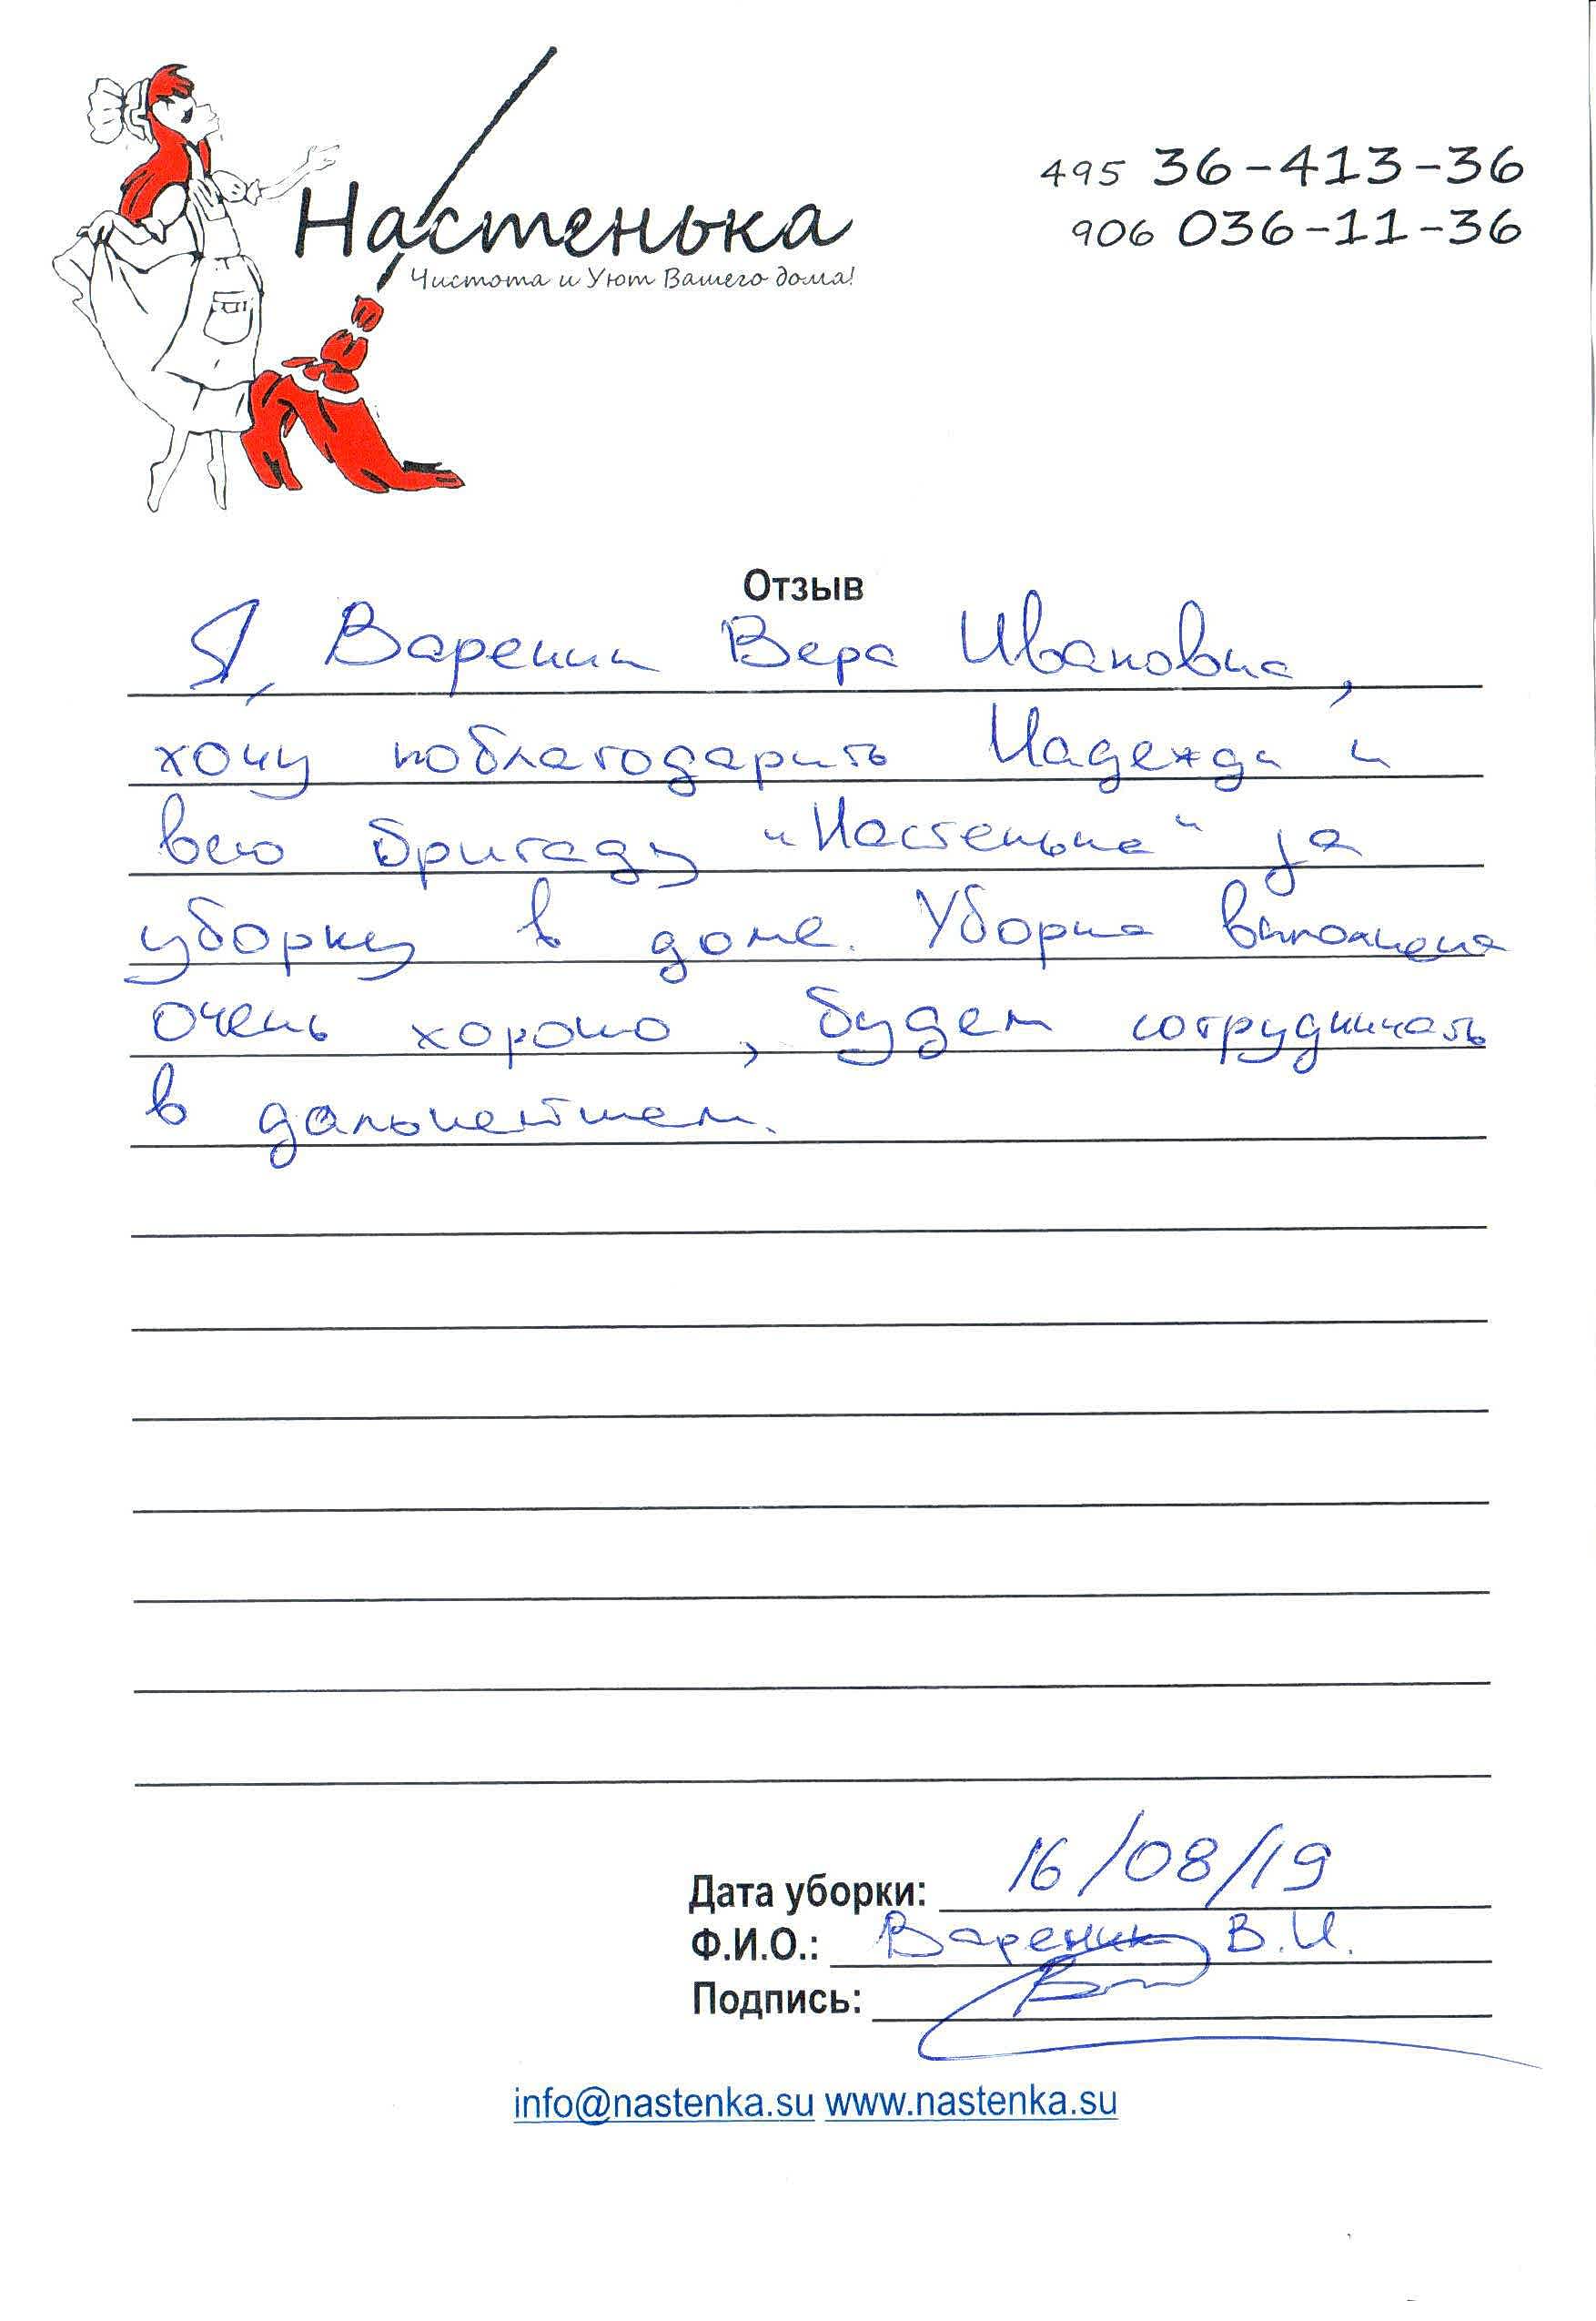 Настенька
Чистота и Уют Вашего дома!
495 36-413-36
906 036-11-36
Отзыв
Я, Вареник Вера Ивановна,
хочу поблагодарить Надежду и
всю бригаду "Настенька" за
уборку в доме. Уборка выполнена
очень хорошо, будем сотрудничать
в дальнейшем.
Дата уборки: 16/08/19
Ф.И.О.: Вареник В.И.
Подпись:
info@nastenka.su www.nastenka.su